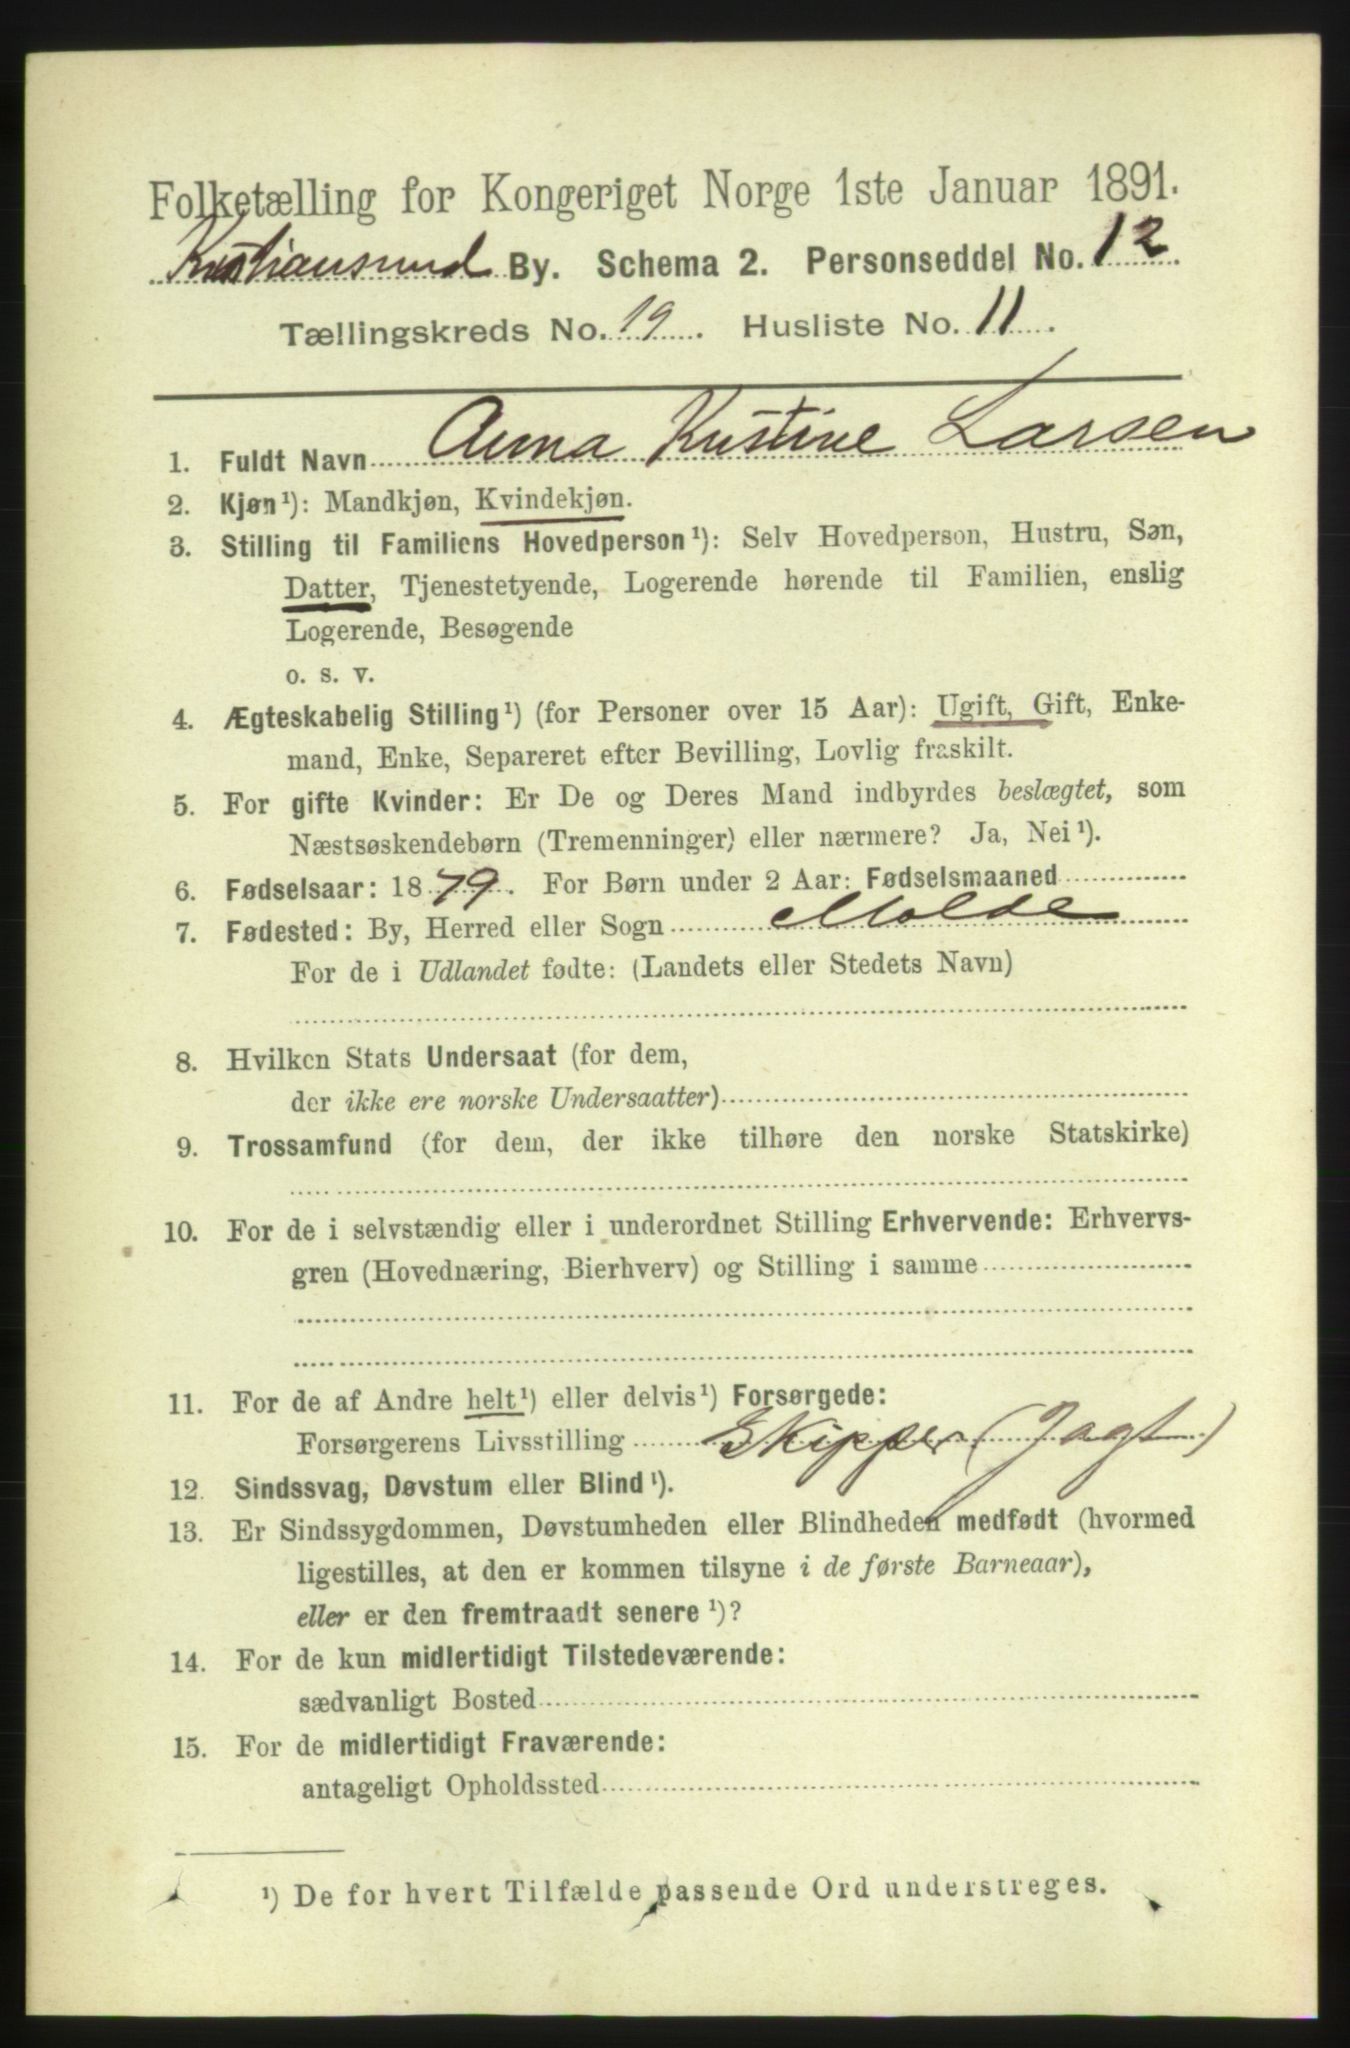 Folketælling for Kongeriget Norge 1ste Januar 1891.
Kristiansund By. Schema 2. Personseddel No. 12
Tællingskreds No. 19. Husliste No. 11.
1. Fuldt Navn Anna Kristine Larsen
2. Kjøn¹): Mandkjøn, Kvindekjøn.
3. Stilling til Familiens Hovedperson¹): Selv Hovedperson, Hustru, Søn,
Datter, Tjenestetyende, Logerende hørende til Familien, enslig
Logerende, Besøgende
o. s. v.
4. Ægteskabelig Stilling¹) (for Personer over 15 Aar): Ugift, Gift, Enke-
mand, Enke, Separeret efter Bevilling, Lovlig fraskilt.
5. For gifte Kvinder: Er De og Deres Mand indbyrdes beslægtet, som
Næstsøskendebørn (Tremenninger) eller nærmere? Ja, Nei¹).
6. Fødselsaar: 1879. For Børn under 2 Aar: Fødselsmaaned
7. Fødested: By, Herred eller Sogn Molde
For de i Udlandet fødte: (Landets eller Stedets Navn)
8. Hvilken Stats Undersaat (for dem,
der ikke ere norske Undersaatter)
9. Trossamfund (for dem, der ikke tilhøre den norske Statskirke)
10. For de i selvstændig eller i underordnet Stilling Erhvervende: Erhvervs-
gren (Hovednæring, Bierhverv) og Stilling i samme
11. For de af Andre helt¹) eller delvis¹) Forsørgede:
Forsørgerens Livsstilling Skipper (Jagt)
12. Sindssvag, Døvstum eller Blind¹).
13. Er Sindssygdommen, Døvstumheden eller Blindheden medfødt (hvormed
ligestilles, at den er kommen tilsyne i de første Barneaar),
eller er den fremtraadt senere¹)?
14. For de kun midlertidigt Tilstedeværende:
sædvanligt Bosted
15. For de midlertidigt Fraværende:
antageligt Opholdssted
¹) De for hvert Tilfælde passende Ord understreges.